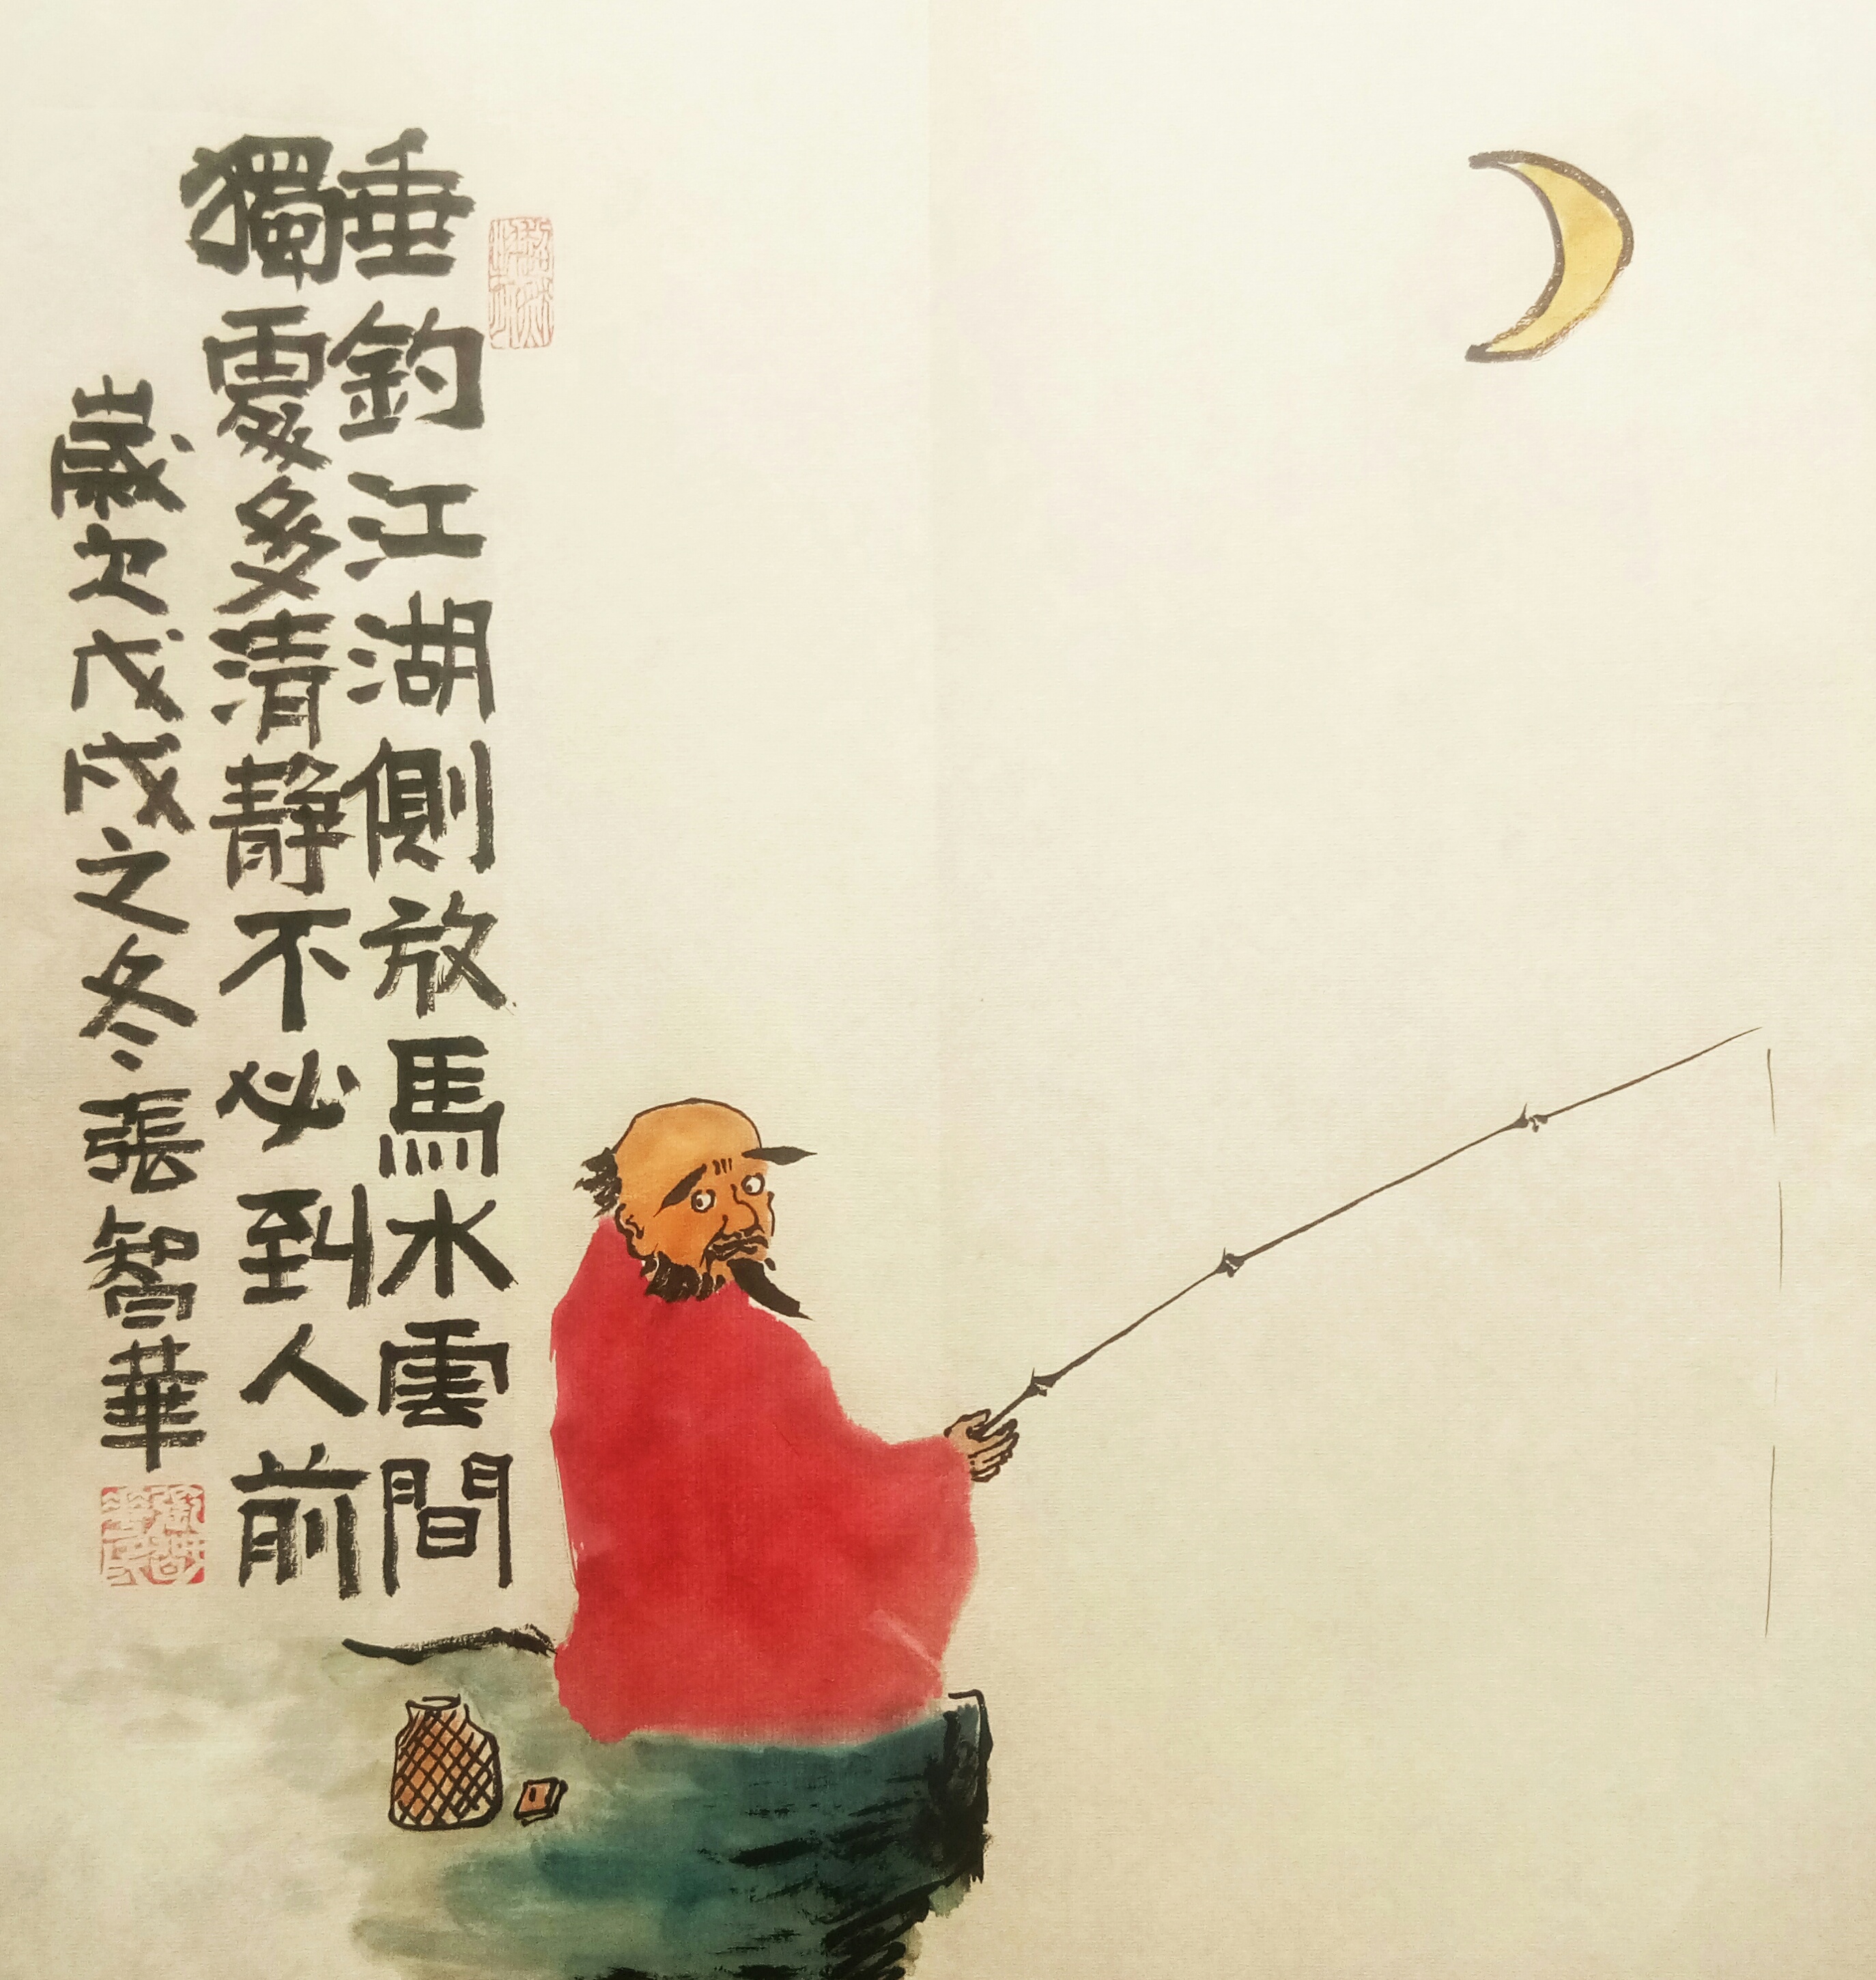 垂釣江湖側放馬水雲間
獨處多清静不必到人前
歲次戊戌之冬張智華